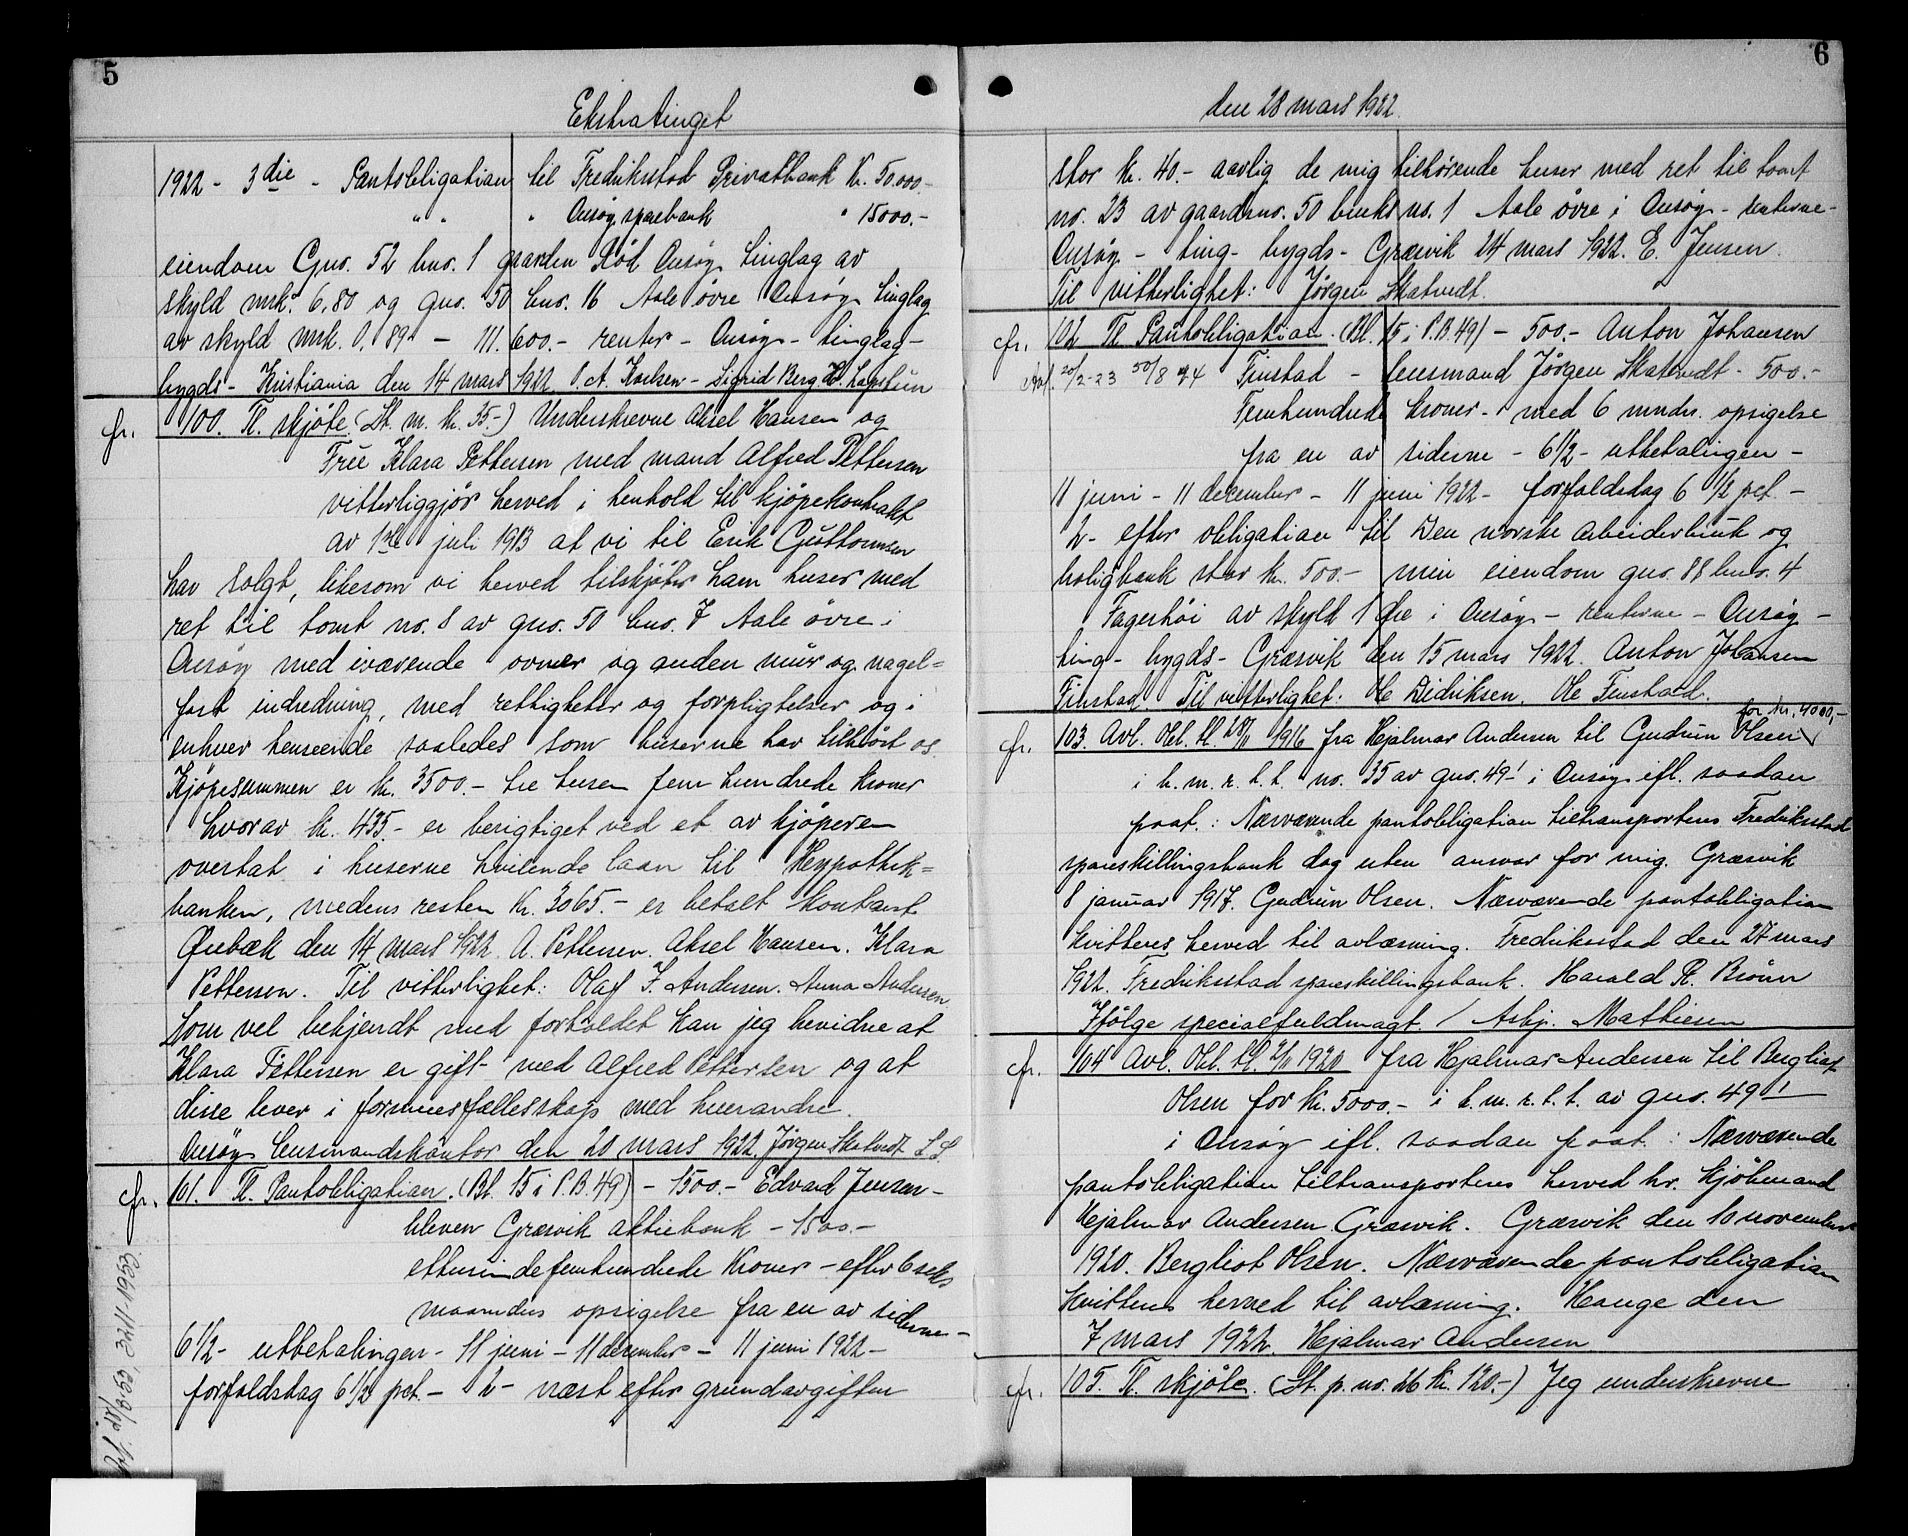 5
Ekstratinget
1922 - 3die - Pantobligation til Fredriksstad Privatbank Kr. 50.000-
" " " Onsøy sparebank " 15000.-
eiendom Gno. 52 bno. 1 gaarden Rød Onsøy tinglag av
skyld mrk. 6,80 og gno. 50 bno. 16 Aale øvre Onsøy tinglag
av skyld mrk. 0,89 - 111.600.- renter - Onsøy - tinglag -
bygds - Kristiania den 14 mars 1922 O. A. Karlsen - Sigrid Berg
cfr. 100. Tl. skjøte (St. m. kr. 35.-) Underskrevne Aksel Hansen og
Frue Klara Pettersen med mand Alfred Pettersen
vitterliggjør herved i henhold til kjøpekontrakt
av 1ste juli 1913 at vi til Erik Guttormsen
har solgt, likesom vi herved tilskjøter ham huser med
ret til tomt no. 8 av gno. 50 bno. 7 Aale øvre i
Onsøy med iværende ovner og anden mur og nagel=
fast indredning, med rettigheter og forpligtelser og i
enhver henseende saaledes som huserne har tilhørt os
Kjøpesummen er kr. 3500.- tre tusen fem hundrede kroner
hvorav kr. 435.- er berigtiget ved et av kjøperen
overtat i huserne hvilende laan til Hypothek=
banken, medens resten kr. 3065.- er betalt kontant
Ørebæk den 14 mars 1922 A. Pettersen. Aksel Hansen. Klara
Pettersen. Til vitterlighet: Olaf J. Andersen. Anna Andersen
Som vel bekjendt med forholdet kan jeg bevidne at
Klara Pettersen er gift med Alfred Pettersen og at
disse lever i formuesfællesskap med hverandre.
Onsøy lensmandskontor den 20 mars 1922. Jørgen Skatvedt L.S.
cfr. 101. Tl. Pantobligation. (Bl. 15 i P.B. 49) - 1500.- Edvard Jensen -
bleven Græsvik aktiebank - 1500 -
ettusindefemhundrede Kroner - efter 6 seks
maaneders opsigelse fra en av siderne -
6 1/2 - utbetalingen - 11 juni - 11 december - 11 juni 1922 -
forfaldsdag 6 1/2 pct. - 2 - næst efter grundavgiften
6
den 28 mars 1922.
stor kr. 40.- aarlig de mig tilhørende huser med ret til tomt
no. 23 av gaardsno. 50 bruks no. 1 Aale øvre i Onsøy - renterne -
Onsøy - ting - bygds - Græsvik 24 mars 1922. E. Jensen.
Til vitterlighet: Jørgen Skatvedt.
cfr. 102 Tl. Pantobligation. (Bl. 15 i P.B. 49) - 500.- Anton Johansen
Finstad - lensmand Jørgen Skatvedt - 500.-
Femhundrede kroner - med 6 mndrs. opsigelse
fra en av siderne - 6 1/2 - utbetalingen -
11 juni - 11 december - 11 juni 1922 - forfaldsdag 6 1/2 pct. -
2 - efter obligation til Den norske arbeiderbruk og
boligbank stor kr. 500.- min eiendom gno. 88 bno. 4
Fagerhøi av skyld 1 øre i Onsøy - renterne - Onsøy -
ting - bygds - Græsvik den 15 mars 1922. Anton Johansen
Finstad. Til vitterlighet: Ole Didriksen. Ole Finstad.
for kr. 4000,-
cfr. 103. Avl. Obl. tl. 28/11 1916 fra Hjalmar Andersen til Gudrun Olsen
i h. m. r. t. t. no. 35 av gno. 49-1 i Onsøy ifl. saadan
paat.: Nærværende pantobligation tiltransporteres Fredriksstad
spareskillingsbank dog uten ansvar for mig. Græsvik
8 januar 1917. Gudrun Olsen. Nærværende pantobligation
kvitteres herved til avlæsning. Fredriksstad den 27 mars
1922. Fredriksstad spareskillingsbank. Harald R. Bruun
Ifølge specialfuldmagt / Asbj. Mathiesen
cfr. 104 Avl. Obl. tl. 2/11 1920 fra Hjalmar Andersen til Bergliot
Olsen for kr. 5000.- i h. m. r. t. t. av gno. 49/1
i Onsøy ifl. saadan paat.: Nærværende
pantobligation tiltransporteres herved hr. kjøbmand
Hjalmar Andersen Græsvik. Græsvik den 10 november
1920. Bergliot Olsen. Nærværende pantobligation
kvitteres herved til avlæsning. Hauge den
7 mars 1922. Hjalmar Andersen
cfr. 105. Tl. skjøte. (St. p. no. 26 kr. 120.-) Jeg underskrevne